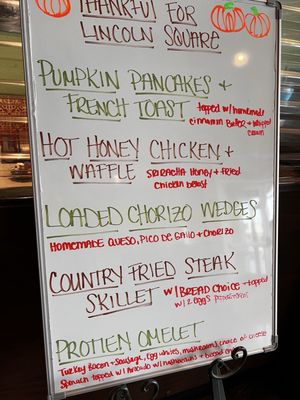 THANKFUL FOR
LINCOLN SQUARE
PUMPKIN PANCAKES +
FRENCH TOAST topped w/ homemade
cinnamon butter + whipped
cream
HOT HONEY CHICKEN +
WAFFLE SRIRACHA HONEY + fried
chicken breast
LOADED CHORIZO WEDGES
HOMEMADE QUESO, PICO DE GALLO + CHORIZO
COUNTRY FRIED STEAK
SKILLET w/ BREAD CHOICE + topped
w/ 2 eggs
PROTIEN OMELET
Turkey Bacon + Sausage, Egg whites, mushrooms, choice of cheese
Spinach topped w/ Avocado w/ hashbrowns + bread